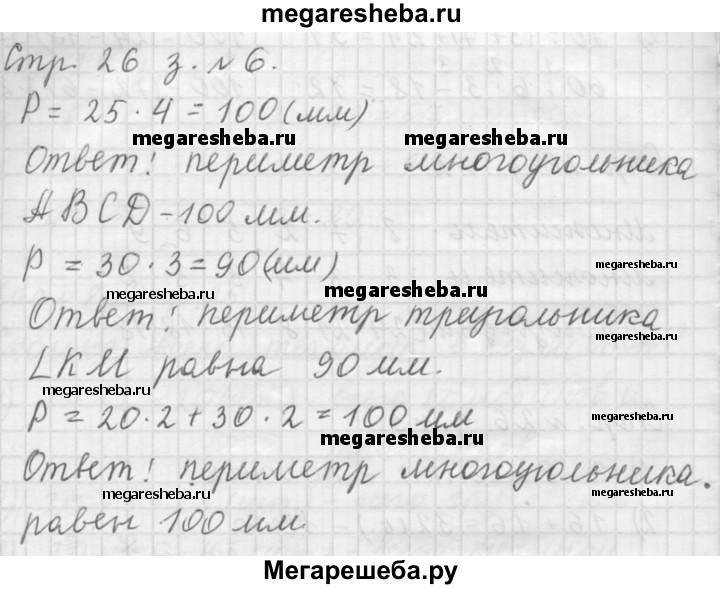 megaresheba.ru
Стр. 26 з. №6.
P = 25 · 4 = 100 (мм)
megaresheba.ru megaresheba.ru
Ответ: периметр многоугольника
ABCD - 100 мм.
P = 30 · 3 = 90 (мм)
megaresheba.ru
megaresheba.ru megaresheba.ru
Ответ: периметр треугольника
megaresheba.ru
LKM равна 90 мм.
megaresheba.ru
P = 20 · 2 + 30 · 2 = 100 мм
megaresheba.ru
megaresheba.ru
Ответ: периметр многоугольника.
megaresheba.ru megaresheba.ru
равен 100 мм.
Мегарешеба.ру